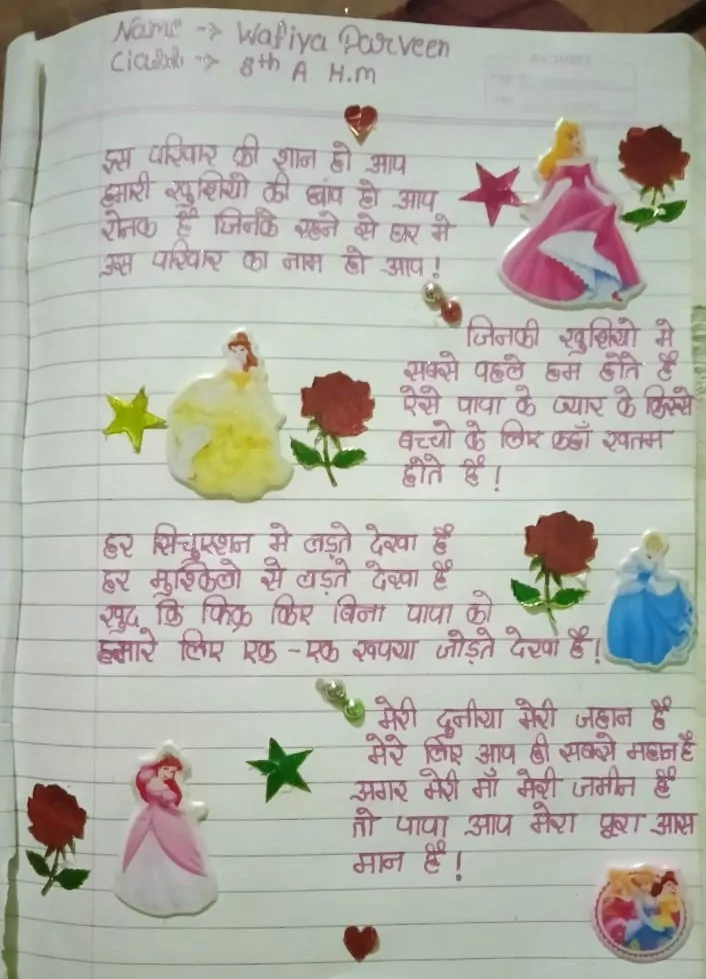 Name → Wafiya Parveen
Class → 8th A H.m
इस परिवार की शान हो आप
हमारी खुशियो की छांप हो आप
रोनक है जिनके रहने से घर मे
उस परिवार का नाम हो आप!
जिनकी खुशियो मे
सबसे पहले हम होते है
ऐसे पापा के प्यार के किस्से
बच्चो के लिए कहाँ खतम
होते है!
हर सिचुएशन मे लड़ते देखा है
हर मुश्किलो से लड़ते देखा है
खुद कि फिक्र किए बिना पापा को
हमारे लिए एक-एक रूपया जोड़ते देखा है!
मेरी दुनीया मेरी जहान है
मेरे लिए आप ही सबसे महान है
अगर मेरी माँ मेरी जमीन है
तो पापा आप मेरा पूरा आस
मान है!